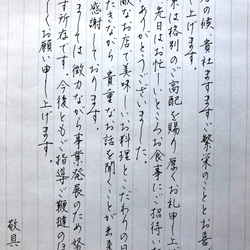 の候、貴社ますますご繁栄のこととお喜
び上げます。
は格別のご高配を賜り厚くお礼申し
先日はお忙しいところお食事にご招待い
ありがとうございました
敵なお店で美味しいお料理とこだわりの日
だきながら、貴重なお話を聞くことが出来
感謝しております。
ましては微力ながら事業発展のため努
す所存です。今後ともご指導ご鞭撻の
しくお願い申し上げます。
敬具